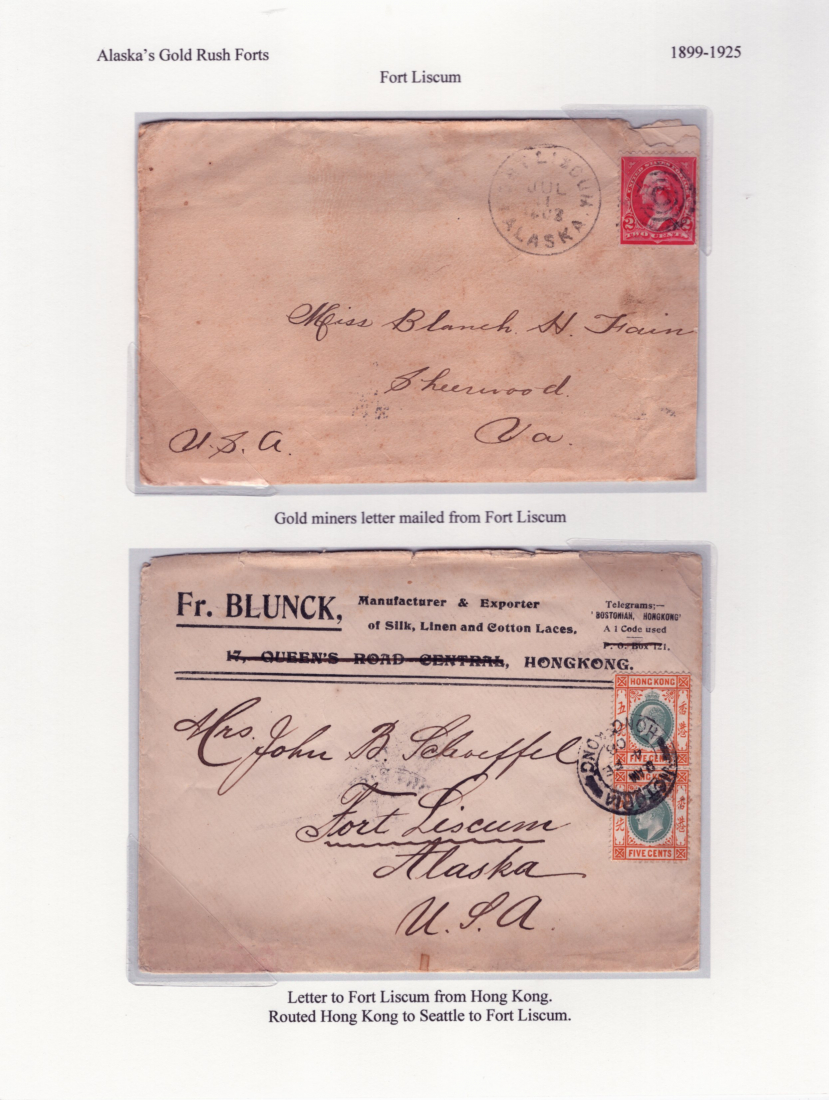 Alaska's Gold Rush Forts
1899-1925
Fort Liscum
LISCUM
JUL
1
ALASKA
2 2
TWO CENTS
Miss Blanch H. Fain
Sheerwood
Va.
U.S.A.
Gold miners letter mailed from Fort Liscum
Fr. BLUNCK,
Manufacturer & Exporter
of Silk, Linen and Cotton Laces,
17, QUEEN'S ROAD CENTRAL, HONGKONG.
Telegrams:—
'BOSTONIAN, HONGKONG'
A 1 Code used
P. O. Box 121.
HONG KONG
香港
五
FIVE CENTS
VICTORIA
HONG KONG
8 AM
香港
FIVE CENTS
Mrs. John B. Schoeffel
Fort Liscum
Alaska
U.S.A.
Letter to Fort Liscum from Hong Kong.
Routed Hong Kong to Seattle to Fort Liscum.